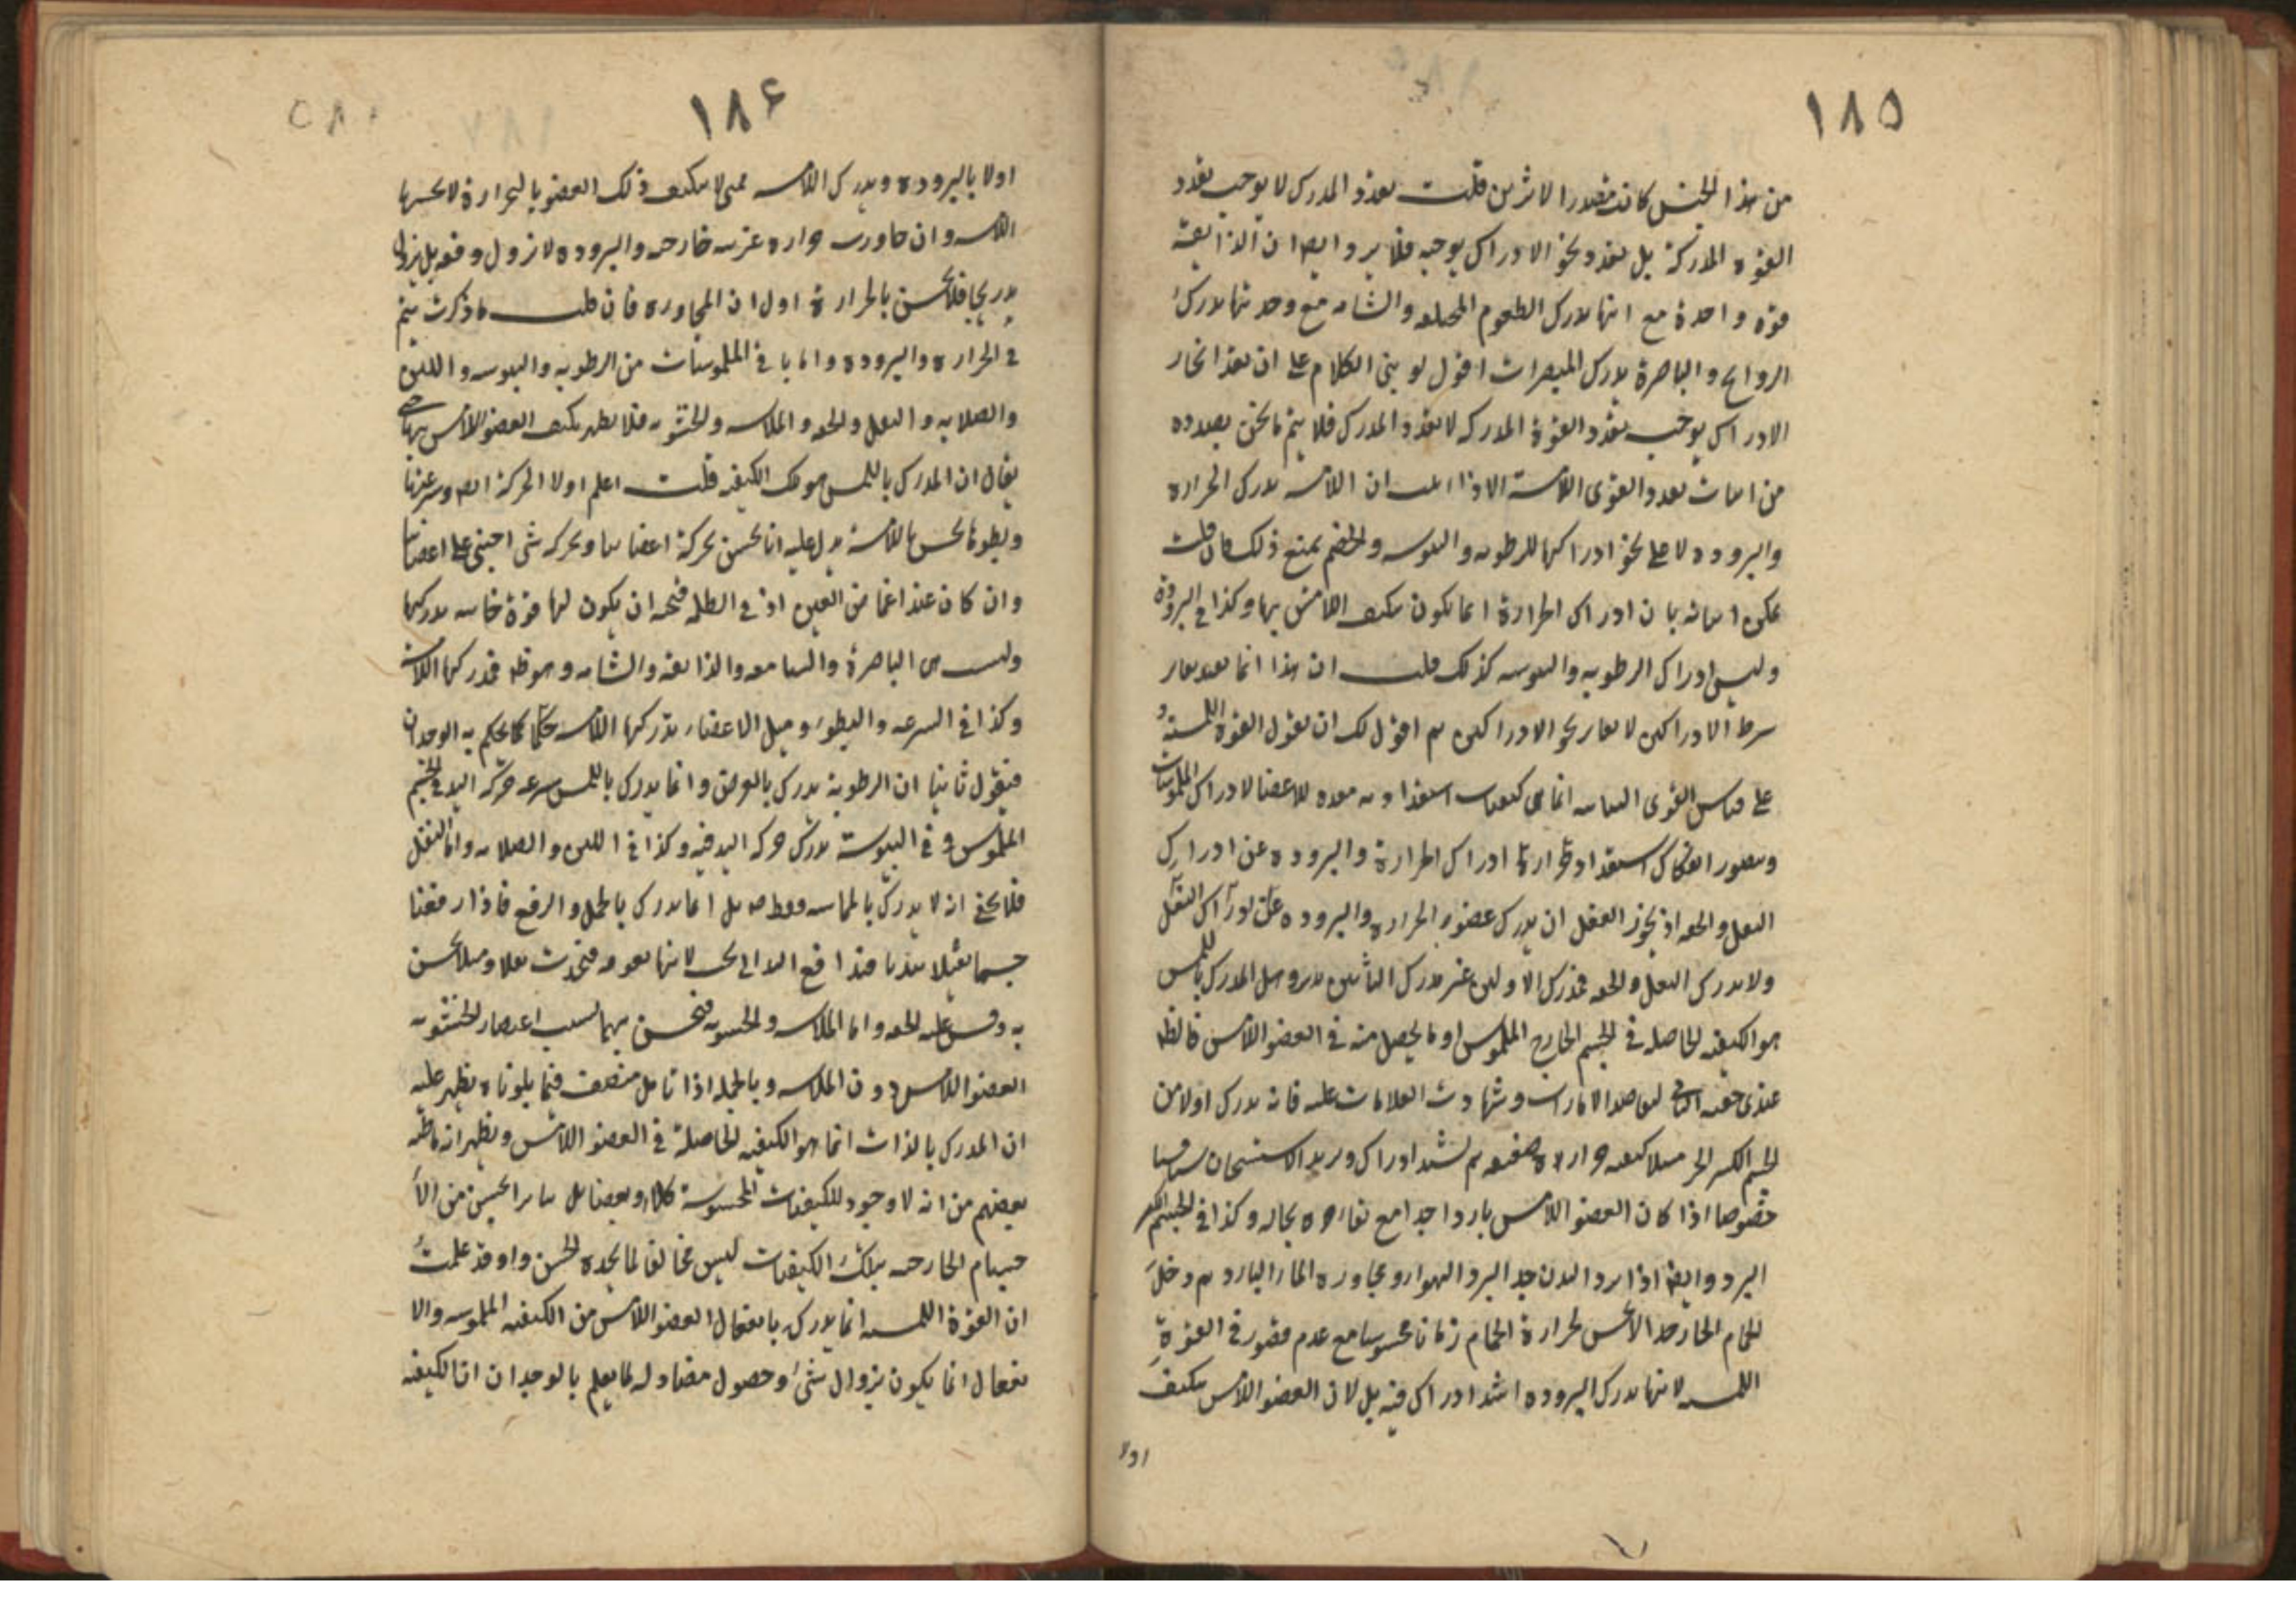 ١٨٥
من هذا الجنس كانت مصدر الاثرين قلت تعدد المدرك لا يوجب تعدد
القوة المدركة بل تعدد نحو الادراك يوجبه فلا يرد ايضا ان الذايقة
قوة واحدة مع انها تدرك الطعوم المختلفة والشامة مع وحدتها تدرك
الروايح والباصرة تدرك المبصرات اقول لو بني الكلام على ان تعدد انحاء
الادراك يوجب تعدد القوة المدركة لا تعدد المدرك فلا يتم ما نحن بصدده
من اثبات تعدد القوى اللامسة الا اذا اثبت ان اللامسة تدرك الحرارة
والبرودة لا على نحو ادراكها للرطوبة واليبوسة والخصم يمنع ذلك فان قلت
يمكن اثباته بان ادراك الحرارة انما يكون بتكيف اللامس بها وكذا في البرودة
وليس ادراك الرطوبة واليبوسة كذلك قلت ان هذا انما يفيد تغاير
شرط الادراكين لا تغاير نحو الادراكين ثم اقول لك ان تقول القوة اللمسية
على قياس القوى الشامة انما هي كيفيات استعدادية معدة للاعضا لادراك الملموسات
ويتصور انفكاك استعداد ادراك الحرارة والبرودة عن ادراك
الثقل والخفة اذ يجوز العقل ان يدرك عضو الحرارة والبرودة
ولا يدرك الثقل والخفة فمدرك الاولين غير مدرك الثانيين تدبر وهل المدرك باللمس
هو الكيفية الحاصلة في الجسم الخارج الملموس او ما يحصل منه في العضو اللامس فالظ
عندي حقية الثاني لتعاضد الامارات وشهادت العلامات عليه فانه يدرك اولا من
الجسم الحر مثلا كيفية حرارة ضعيفة ثم يشتد ادراك ويزيد الاستسخان شيئا فشيئا
خصوصا اذا كان العضو اللامس باردا جدا مع بقاء حره بحاله وكذا في الجسم
البرد وايضا اذا برد البدن جدا لبرد الهوا او مجاورة الماء البارد ثم دخل
الحمام الحار جدا لا يحس لحرارة الحمام زمانا محسوسا مع عدم قصور في القوة
اللمسية لانها تدرك البرودة اشد ادراك فيه بل لان العضو اللامس يتكيف
اولا
١٨۶
اولا بالبرودة ويدرك اللامسة فمتى لا يتكيف ذلك العضو بالحرارة لا تحسها
اللامسة وان جاورت حرارة غريبة خارجة والبرودة لا تزول دفعة بل يزول
تدريجا فلا يحس بالحرارة اول ان المجاورة فان قلت ما ذكرت يتم
في الحرارة والبرودة واما باقي الملموسات من الرطوبة واليبوسة واللين
والصلابة والثقل والخفة والملاسة والخشونة فلا يظهر تكيف العضو اللامس بها حتى
يقال ان المدرك باللمس هو تلك الكيفية قلت اعلم اولا الحركة ايضا وسرعتها
وبطوها تحس باللامسة يدل عليه انا نحس بحركة اعضائنا وبحركة شي اجنبي على اعضائنا
وان كان عند اغماض العين او في الظلمة فيجب ان يكون لها قوة خاصة تدركها
وليست هي الباصرة والسامعة والذايقة والشامة وهو ظ فمدركها اللامسة
وكذا في السرعة والبطوء وميل الاعضاء تدركها اللامسة كما يحكم به الوجدان
فنقول ثانيا ان الرطوبة تدرك بالعرض وانما يدرك باللمس سرعة حركة اليد في الجسم
الملموس وفي اليبوسة يدرك حركة اليد فيه وكذا في اللين والصلابة واما الثقل
فلا يخفى انه لا يدرك بالمماسة فقط بل انما يدرك بالحمل والرفع فاذا رفعنا
جسما ثقيلا بيدنا
به وقس عليه الخفة واما الملاسة والخشونة فنحس بهما بسبب الخشونة
العضو اللامس دون الملاسة وبالجملة اذا تامل منصف فيما تلوناه يظهر عليه
ان المدرك بالذات انما هو الكيفية الحاصلة في العضو اللامس ويظهر انه ما ظنه
بعضهم من انه لا وجود للكيفيات المحسوسة كلا او بعضا بل الا
جسام الخارجة بتلك الكيفيات ليس مخالفا لما يجده الحس واو قد علمت
ان القوة اللمسية انما يدرك بانفعال العضو اللامس من الكيفية الملموسة والا
نفعال انما يكون بزوال شيء وحصول مضاد له كما يعلم بالوجدان ان الكيفية